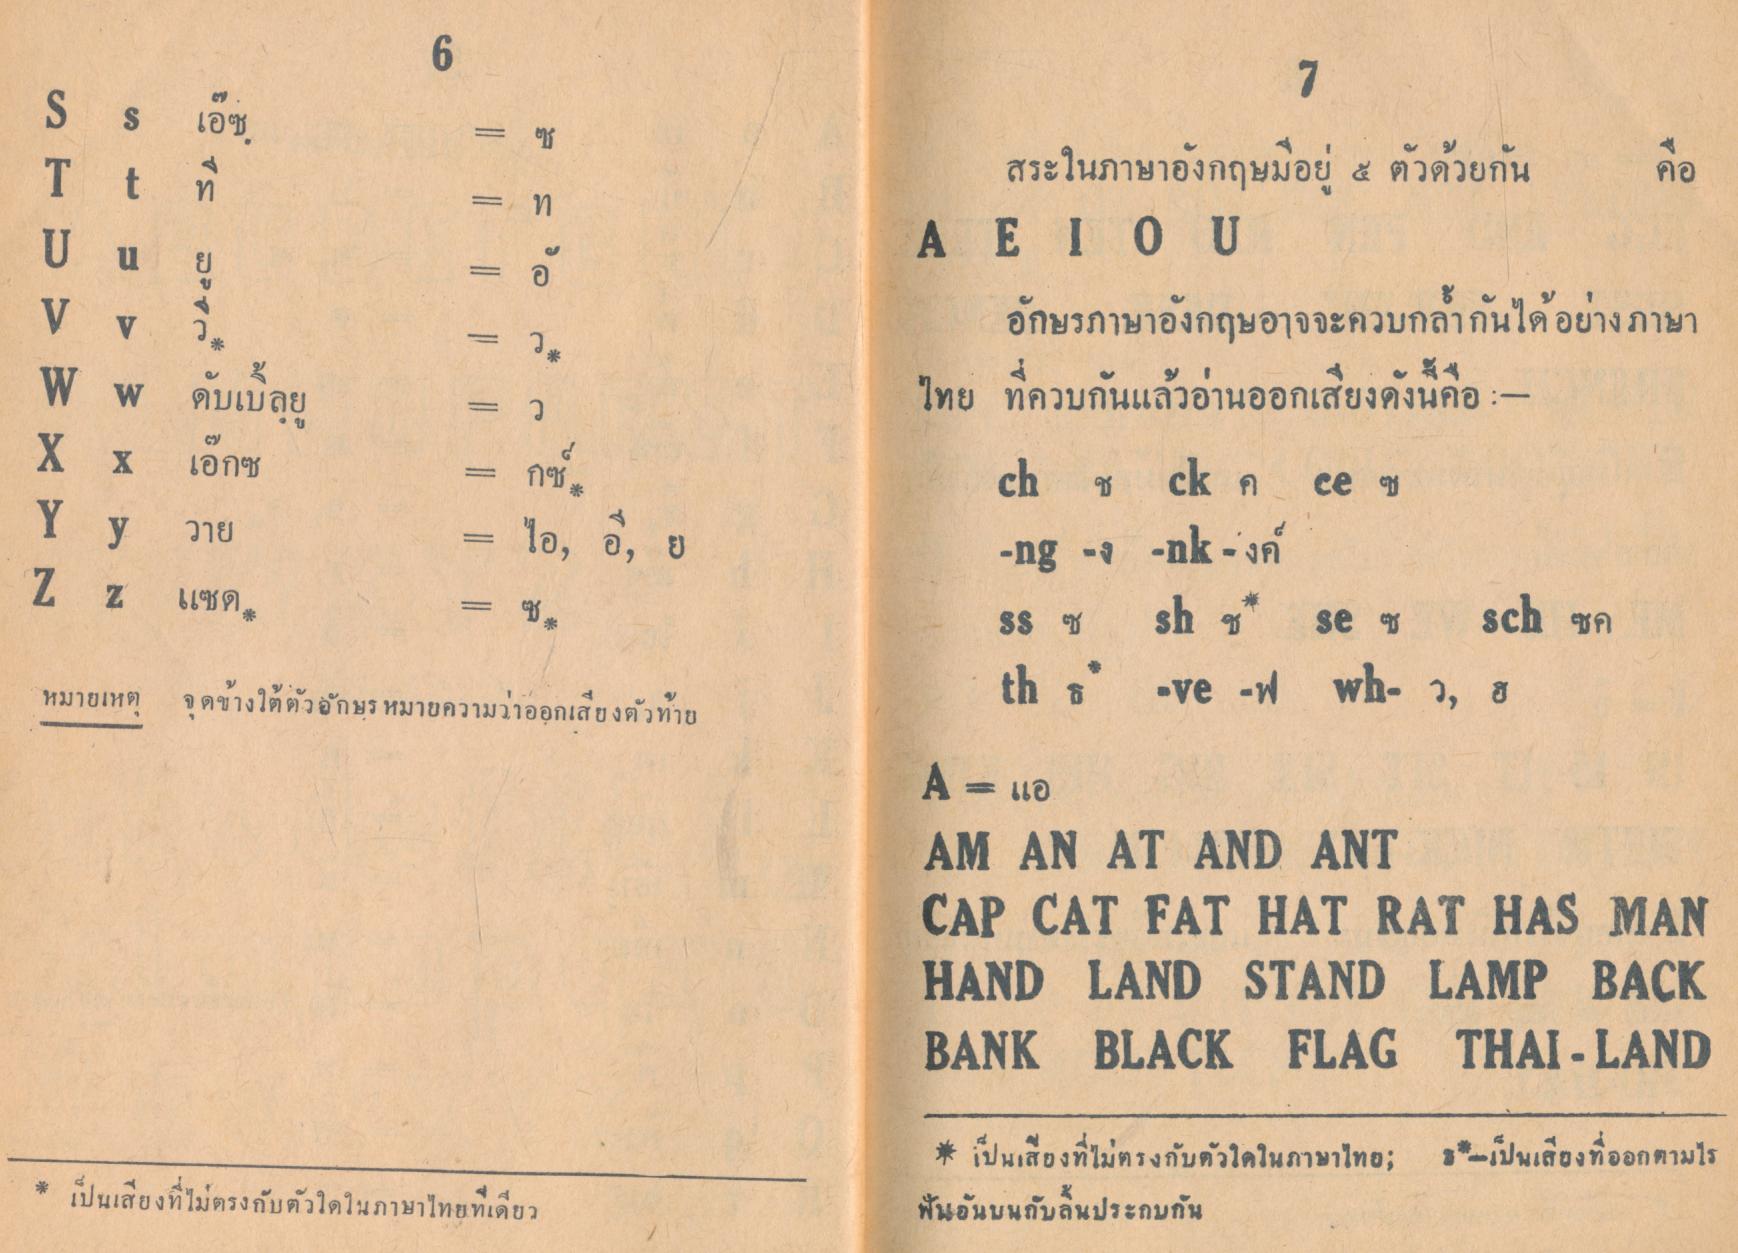 6
S s เอ๊ซฺ = ซ
T t ที = ท
U u ยู = อั
V v วี* = ว*
W w ดับเบิ้ลฺยู = ว
X x เอ๊กซ = กซ์*
Y y วาย = ไอ, อี, ย
Z z แซด* = ซ*
หมายเหตุ จุดข้างใต้ตัวอักษรหมายความว่าออกเสียงตัวท้าย
* เป็นเสียงที่ไม่ตรงกับตัวใดในภาษาไทยทีเดียว
7
สระในภาษาอังกฤษมีอยู่ ๕ ตัวด้วยกัน คือ
A E I O U
อักษรภาษาอังกฤษอาจจะควบกล้ำกันได้อย่างภาษา
ไทย ที่ควบกันแล้วอ่านออกเสียงดังนี้คือ :—
ch ช ck ค ce ซ
-ng -ง -nk -งค์
ss ซ sh ช* se ซ sch ซค
th ธ* -ve -ฟ wh- ว, ฮ
A = แอ
AM AN AT AND ANT
CAP CAT FAT HAT RAT HAS MAN
HAND LAND STAND LAMP BACK
BANK BLACK FLAG THAI-LAND
* เป็นเสียงที่ไม่ตรงกับตัวใดในภาษาไทย; ธ*—เป็นเสียงที่ออกตามไร
ฟันอันบนกับลิ้นประกบกัน